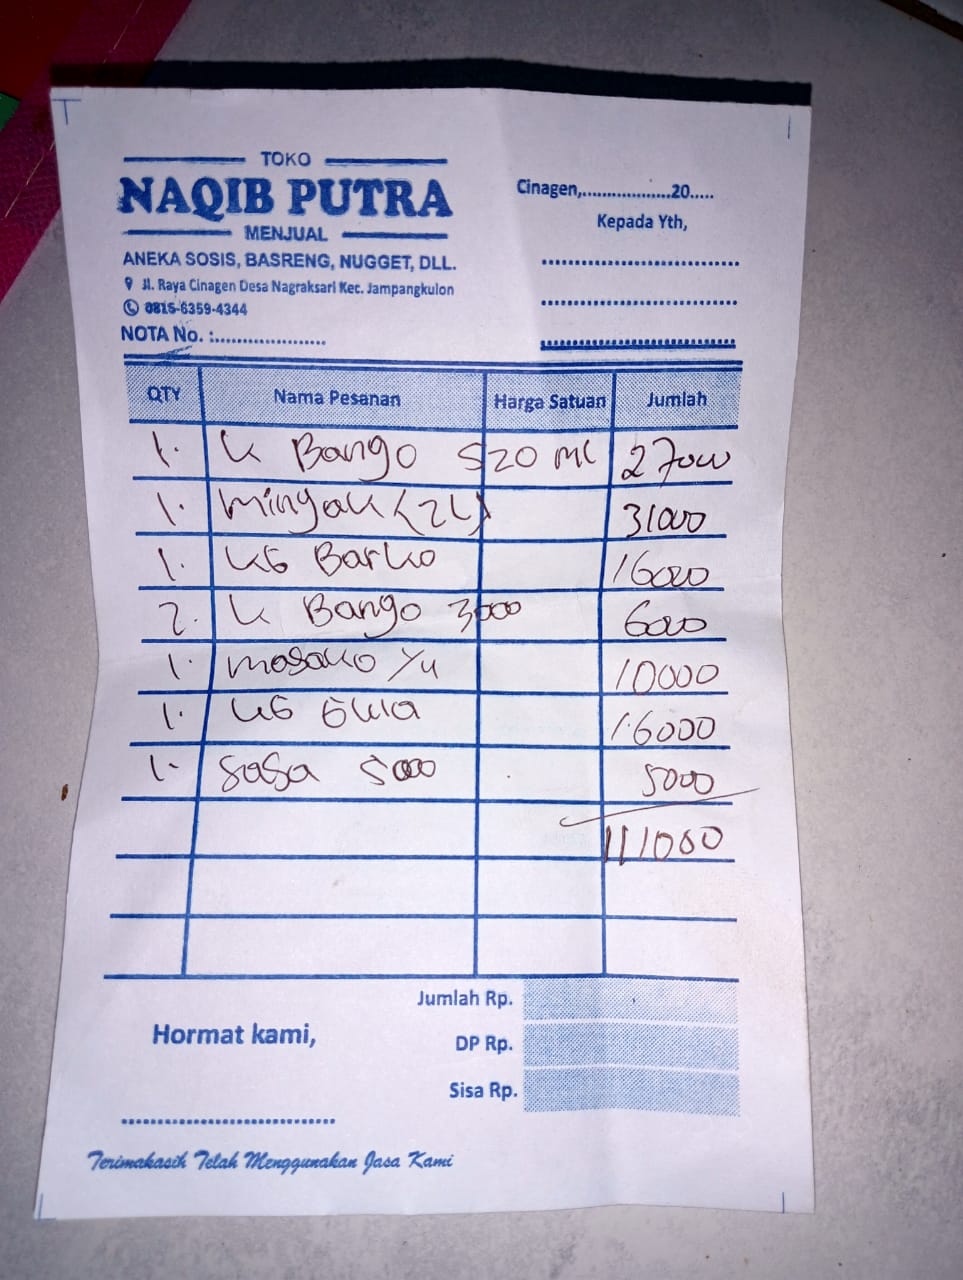 TOKO
NAQIB PUTRA
MENJUAL
ANEKA SOSIS, BASRENG, NUGGET, DLL.
Jl. Raya Cinagen Desa Nagraksari Kec. Jampangkulon
0815-6359-4344
NOTA No. :....................
Cinagen,..................20.....
Kepada Yth,
QTY Nama Pesanan Harga Satuan Jumlah
1. K Bango 520 ML 27000
1. Minyak (2L) 31000
1. KG Barko 16000
2. K Bango 3000 6000
1. Masako 10000
1. KG 16000
1. Sasa 5000 5000
111000
Jumlah Rp.
DP Rp.
Sisa Rp.
Hormat kami,
Terimakasih Telah Menggunakan Jasa Kami